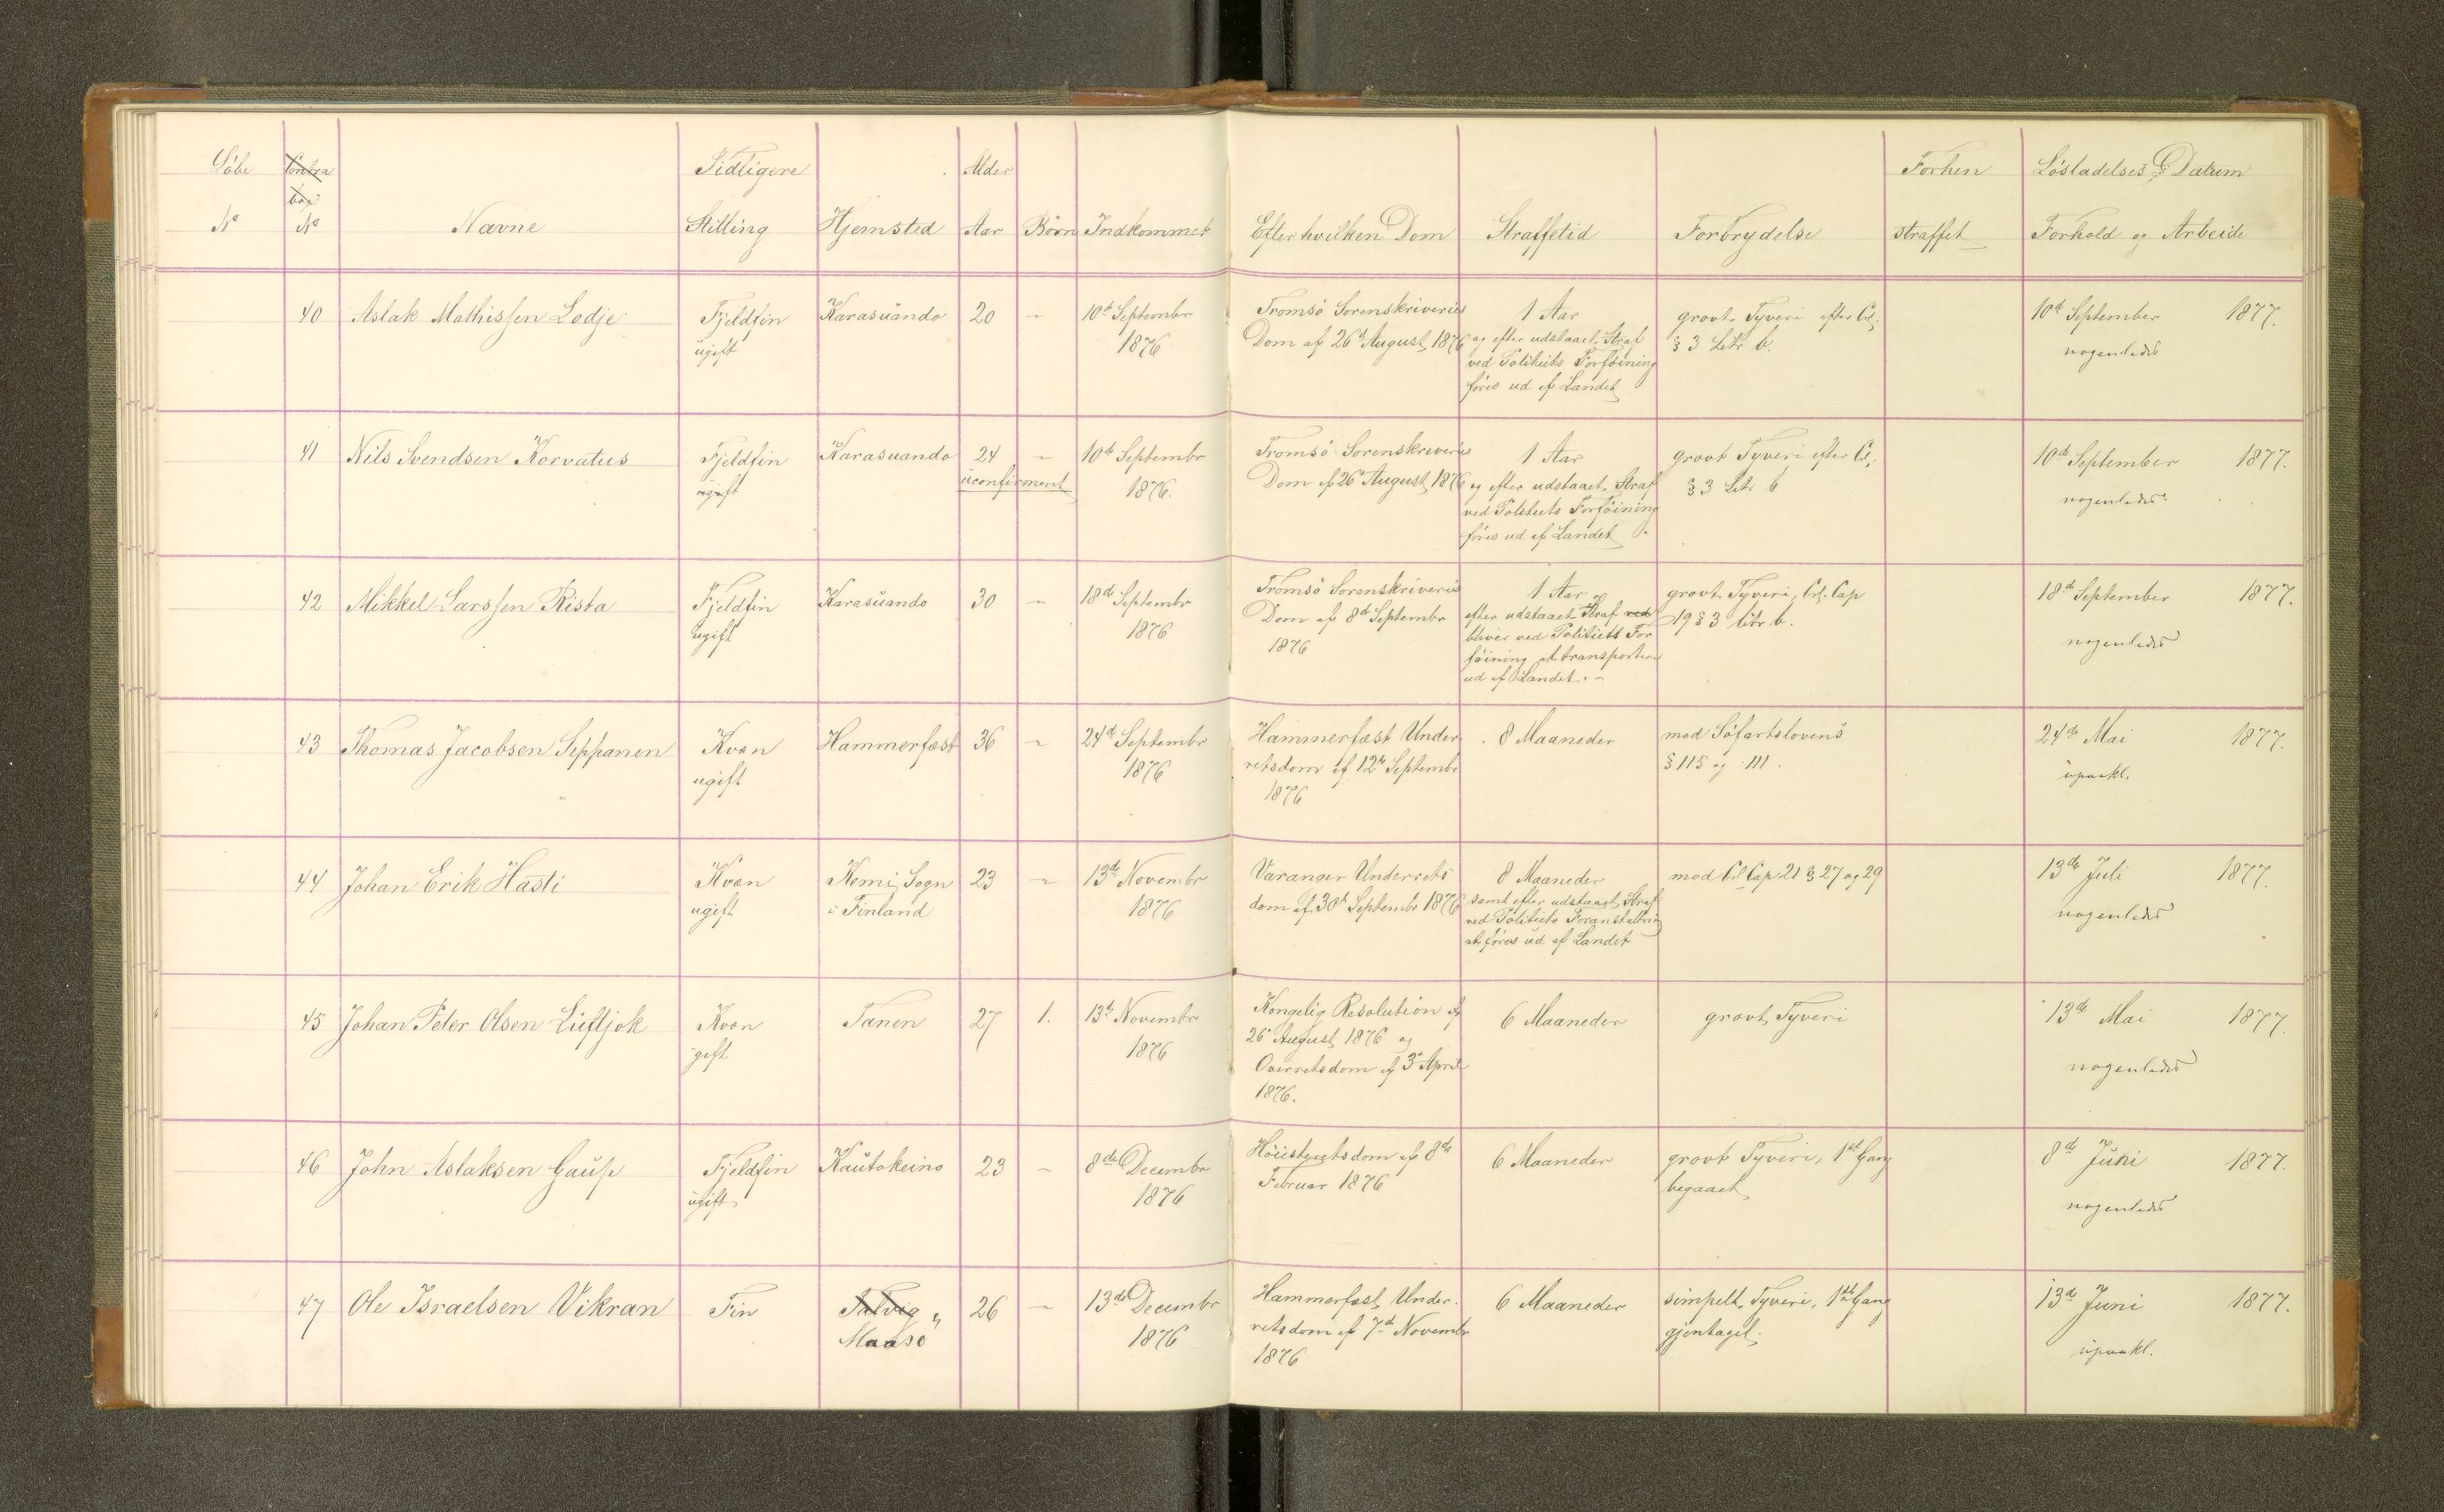 Løbe Tidligere Alder Forhen Løsladelses Datum
No No Navne Stilling Hjemsted Aar Börn Indkommet Efter hvilken Dom Straffetid Forbrydelse straffet Forhold og Arbeide
40 Aslak Mathissen Lodje Fjeldfin Karasuando 20 - 10de Septembr Tromsö Sorenskriveries 1 Aar grovt Tyveri efter Crl. 10de September 1877.
ugift 1876 Dom af 26de August 1876 og efter udstaaet Straf § 3 Litr b. nogenledes
ved Politiets Forföining
föres ud af Landet
41 Nils Svendsen Korvatus Fjeldfin Karasuando 24 - 10de Septembr Tromsö Sorenskriveries 1 Aar grovt Tyveri efter Crl. 10de September 1877.
ugift uconfirmeret 1876. Dom af 26de August 1876 og efter udstaaet Straf § 3 Litr b nogenledes
ved Politiets Forföining
föres ud af Landet.
42 Mikkel Larssen Rista Fjeldfin Karasuando 30 - 18de Septembr Tromsö Sorenskriveries 1 Aar og grovt Tyveri, Crl. Cap 18de September 1877.
ugift 1876 Dom af 8de Septembr efter udstaaet Straf ved 19 § 3 litr b. nogenledes
1876 bliver ved Politiets For
föining at transportere
ud af Landet. -
43 Thomas Jacobsen Seppanen Kvæn Hammerfæst 36 - 24de Septembr Hammerfæst Under 8 Maaneder mod Söfartslovens 24de Mai 1877.
ugift 1876 retsdom af 12te Septembr § 115 og 111. upaakl.
1876
44. Johan Erik Hasti Kvæn Kemi Sogn 23 - 13de Novembr Varanger Underrets 8 Maaneder mod Crl Cap 21 § 27 og 29 13de Juli 1877.
ugift i Finland 1876 dom af 30te Septembr 1876 samt efter udstaaet Straf nogenledes
ved Politiets Foranstaltning
at föres ud af Landet
45 Johan Peter Olsen Luftjok Kvæn Tanen 27 1. 13de Novembr Kongelig Resolution af 6 Maaneder grovt Tyveri 13de Mai 1877.
gift 1876 26de August 1876 og nogenledes
Overretsdom af 3de April
1876.
46 John Aslaksen Gaup Fjeldfin Kautokeino 23 - 8de Decembr Höiesteretsdom af 8de 6 Maaneder grovt Tyveri, 1ste Gang 8de Juni 1877.
ugift 1876 Februar 1876 begaaet nogenledes
47 Ole Israelsen Vikran Fin Talvig 26 - 13de Decembr Hammerfæst Under- 6 Maaneder simpelt Tyveri, 1ste Gang 13de Juni 1877.
Maasö 1876 retsdom af 7de Novembr gjentaget. upaakl.
1876